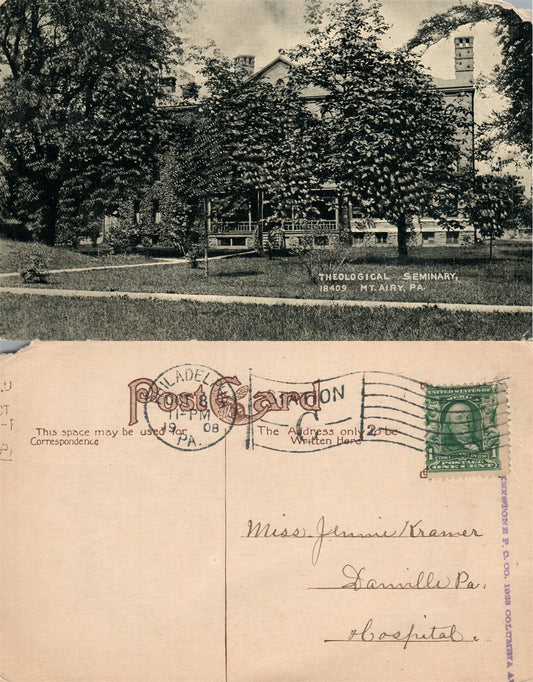 THEOLOGICAL SEMINARY,
18409 MT. AIRY, PA.
Post Card
This space may be used for
Correspondence
The Address only to be
Written Here
PHILADELPHIA
OCT 8
11-PM
19 08
PA.
STATION
C
2
POSTAGE
ONE CENT
Miss Jennie Kramer
Danville Pa.
Hospital.
KEYSTONE P. C. CO. 1928 COLUMBIA AV